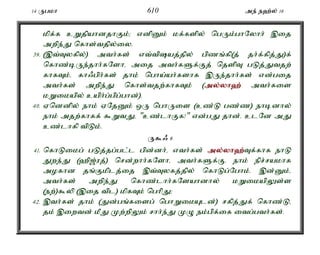 14 ருபமா 610 அந் நஹ்ல் 16
மிக்க உறுதியானதாகும்; எனினும் மக்களில் பெரும்பாலோர் இதை அறிந்து கொள்வதில்லை.
39. (இவ்வுலகில்) அவர்கள் எவ்விஷயத்தில் பிணங்கி(த் தர்க்கித்து)க்
கொண்டிருந்தார்களோ, அதை அவர்களுக்குத் தெளிவு படுத்துவதற்
காகவும், காஃபிர்கள் தாம் பொய்யர்களாக இருந்தார்கள் என்பதை
அவர்கள் அறிந்து கொள்வதற்காகவும் (அல்லாஹ் அவர்களை
மறுமையில் உயிர்ப்பிப்பான்).
40. ஏனெனில் நாம் ஏதேனும் ஒரு பொருளை (உண்டு பண்ண) நாடினால்
நாம் அதற்காகக் கூறுவது, "உண்டாகுக!" என்பது தான். உடனே அது
உண்டாகி விடும்.
ருகூஃ 6
41. கொடுமைப் படுத்தப்பட்ட பின்னர், எவர்கள் அல்லாஹ்வுக்காக நாடு
துறந்து (ஹிஜ்ரத்) சென்றார்களோ, அவர்களுக்கு, நாம் நிச்சயமாக
அழகான தங்குமிடத்தை இவ்வுலகத்தில் கொடுப்போம். இன்னும்,
அவர்கள் அறிந்து கொண்டார்களேயானால் மறுமையிலுள்ள
(நற்)கூலி (இதை விட) மிகவும் பெரிது;
42. இவர்கள் தாம் (துன்பங்களைப் பொறுமையுடன்) சகித்துக் கொண்டு,
தம் இறைவன் மீது முற்றிலும் சார்ந்து முழு நம்பிக்கை வைப்பவர்கள்.